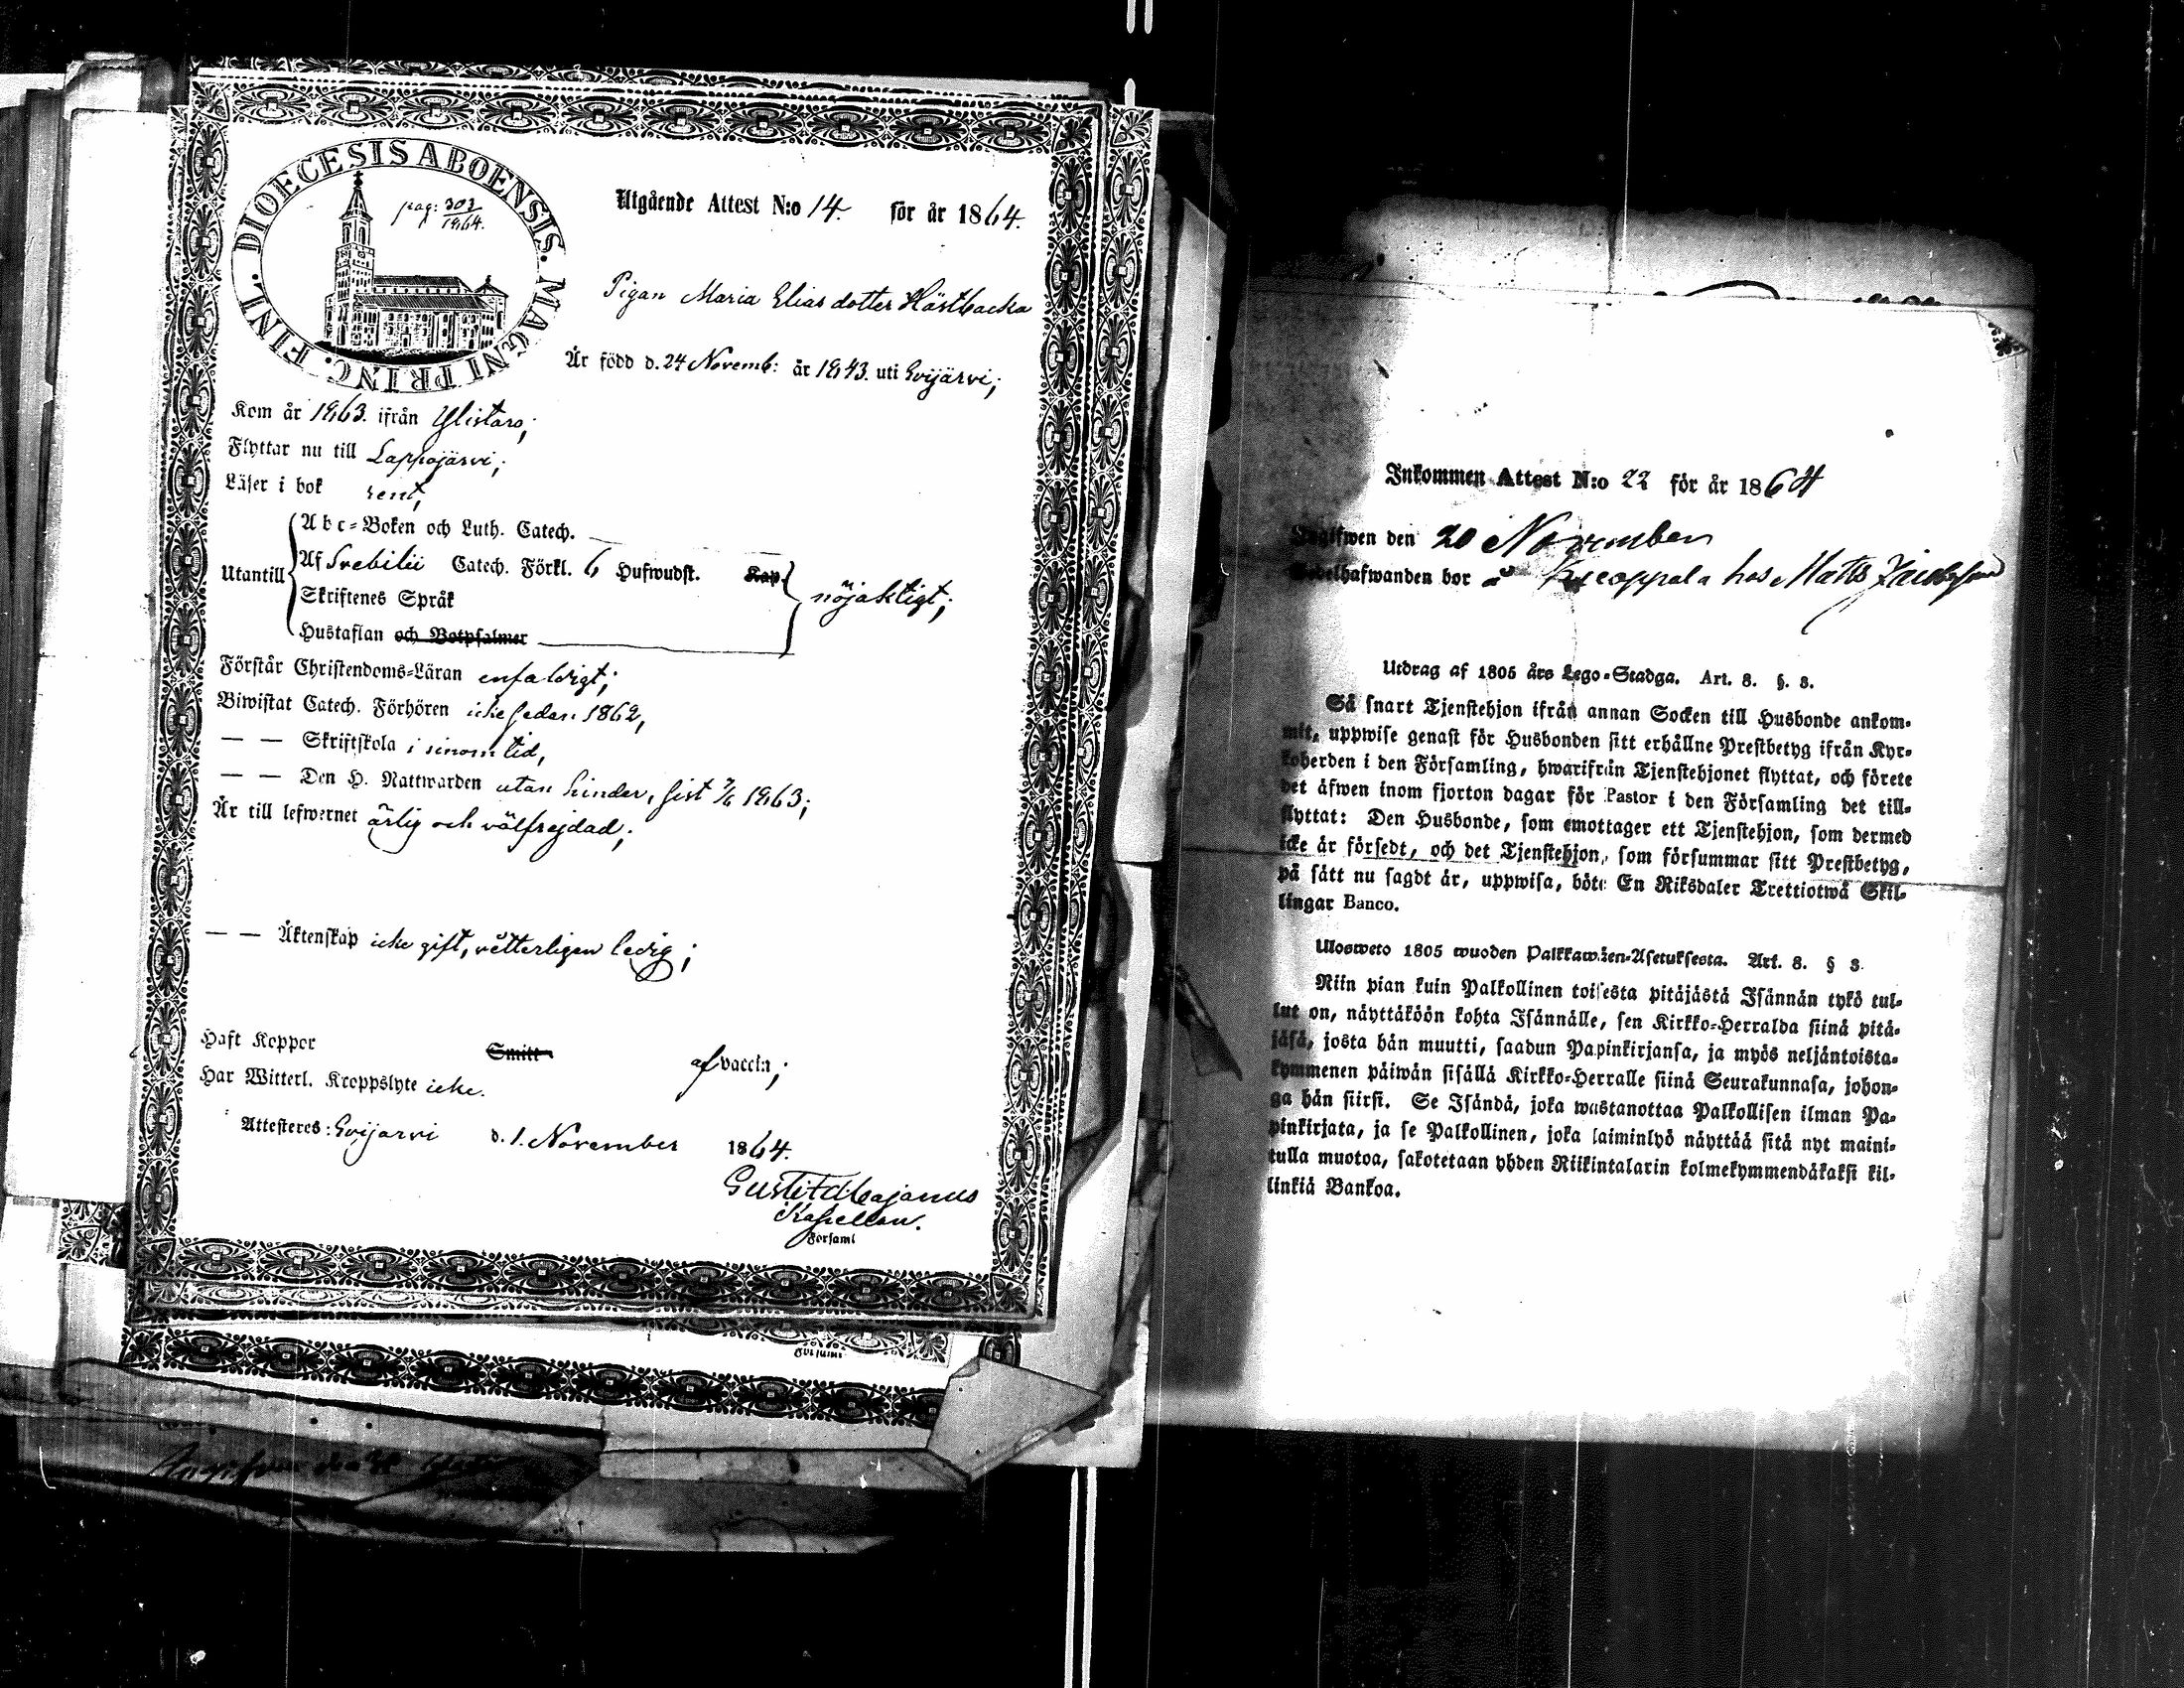 DIOECESIS ABOENSIS. MAGNI PRINC. FINL.
pag: 302
1864.
Utgående Attest N:o 14. för år 1864.
Pigan Maria Elias dotter Hästbacka
Är född d. 24 Novemb: år 1843. uti Evijärvi;
Kom år 1863. ifrån Ylistaro;
Flyttar nu till Lappojärvi;
Läser i bok rent,
Utantill
Abc-Boken och Luth. Catech.
Af Svebilii Catech. Förkl. 6 Hufwudst. Kap.
Skriftenes Språk
Hustaflan och Botpsalmer
nöjaktigt;
Förstår Christendoms-Läran enfaldigt;
Biwistat Catech. Förhören icke sedan 1862,
— — Skriftskola i sinom tid,
— — Den H. Nattwarden utan hinder, sist 7/6 1863;
Är till lefwernet ärlig och välfrejdad;
— — Äktenskap icke gift, vetterligen ledig;
Haft Koppor Smitt af vaccin;
Har Witterl. Kroppslyte icke.
Attesteres: Evijärvi d. 1. November 1864.
Kapellan.
Församl
Inkommen Attest N:o 22 för år 1864
Uppgifwen den 20 November
Sedelhafwanden bor å hos Matts Jacobsson
Utdrag af 1805 års Lego-Stadga. Art. 8. §. 3.
Så snart Tjenstehjon ifrån annan Socken till Husbonde ankom-
mit, uppwise genast för Husbonden sitt erhållne Prestbetyg ifrån Kyr-
koherden i den Församling, hwarifrån Tjenstehjonet flyttat, och förete
det äfwen inom fjorton dagar för Pastor i den Församling det till-
flyttat: Den Husbonde, som emottager ett Tjenstehjon, som dermed
icke är försedt, och det Tjenstehjon, som försummar sitt Prestbetyg,
på sätt nu sagdt är, uppwisa, böte En Riksdaler Trettiotwå Skil-
lingar Banco.
Ulosweto 1805 wuoden Palkkawäen-Asetuksesta. Art. 8. § 3.
Niin pian kuin Palkollinen toisesta pitäjästä Isännän tykö tul-
lut on, näyttäköön kohta Isännälle, sen Kirkko-Herralda siinä pitä-
jäsä, josta hän muutti, saadun Papinkirjansa, ja myös neljäntoista-
kymmenen päiwän sisällä Kirkko-Herralle siinä Seurakunnasa, johon-
ga hän siirsi. Se Isändä, joka wastanottaa Palkollisen ilman Pa-
pinkirjata, ja se Palkollinen, joka laiminlyö näyttää sitä nyt maini-
tulla muotoa, sakotetaan yhden Riikintalarin kolmekymmendäkaksi kil-
linkiä Bankoa.